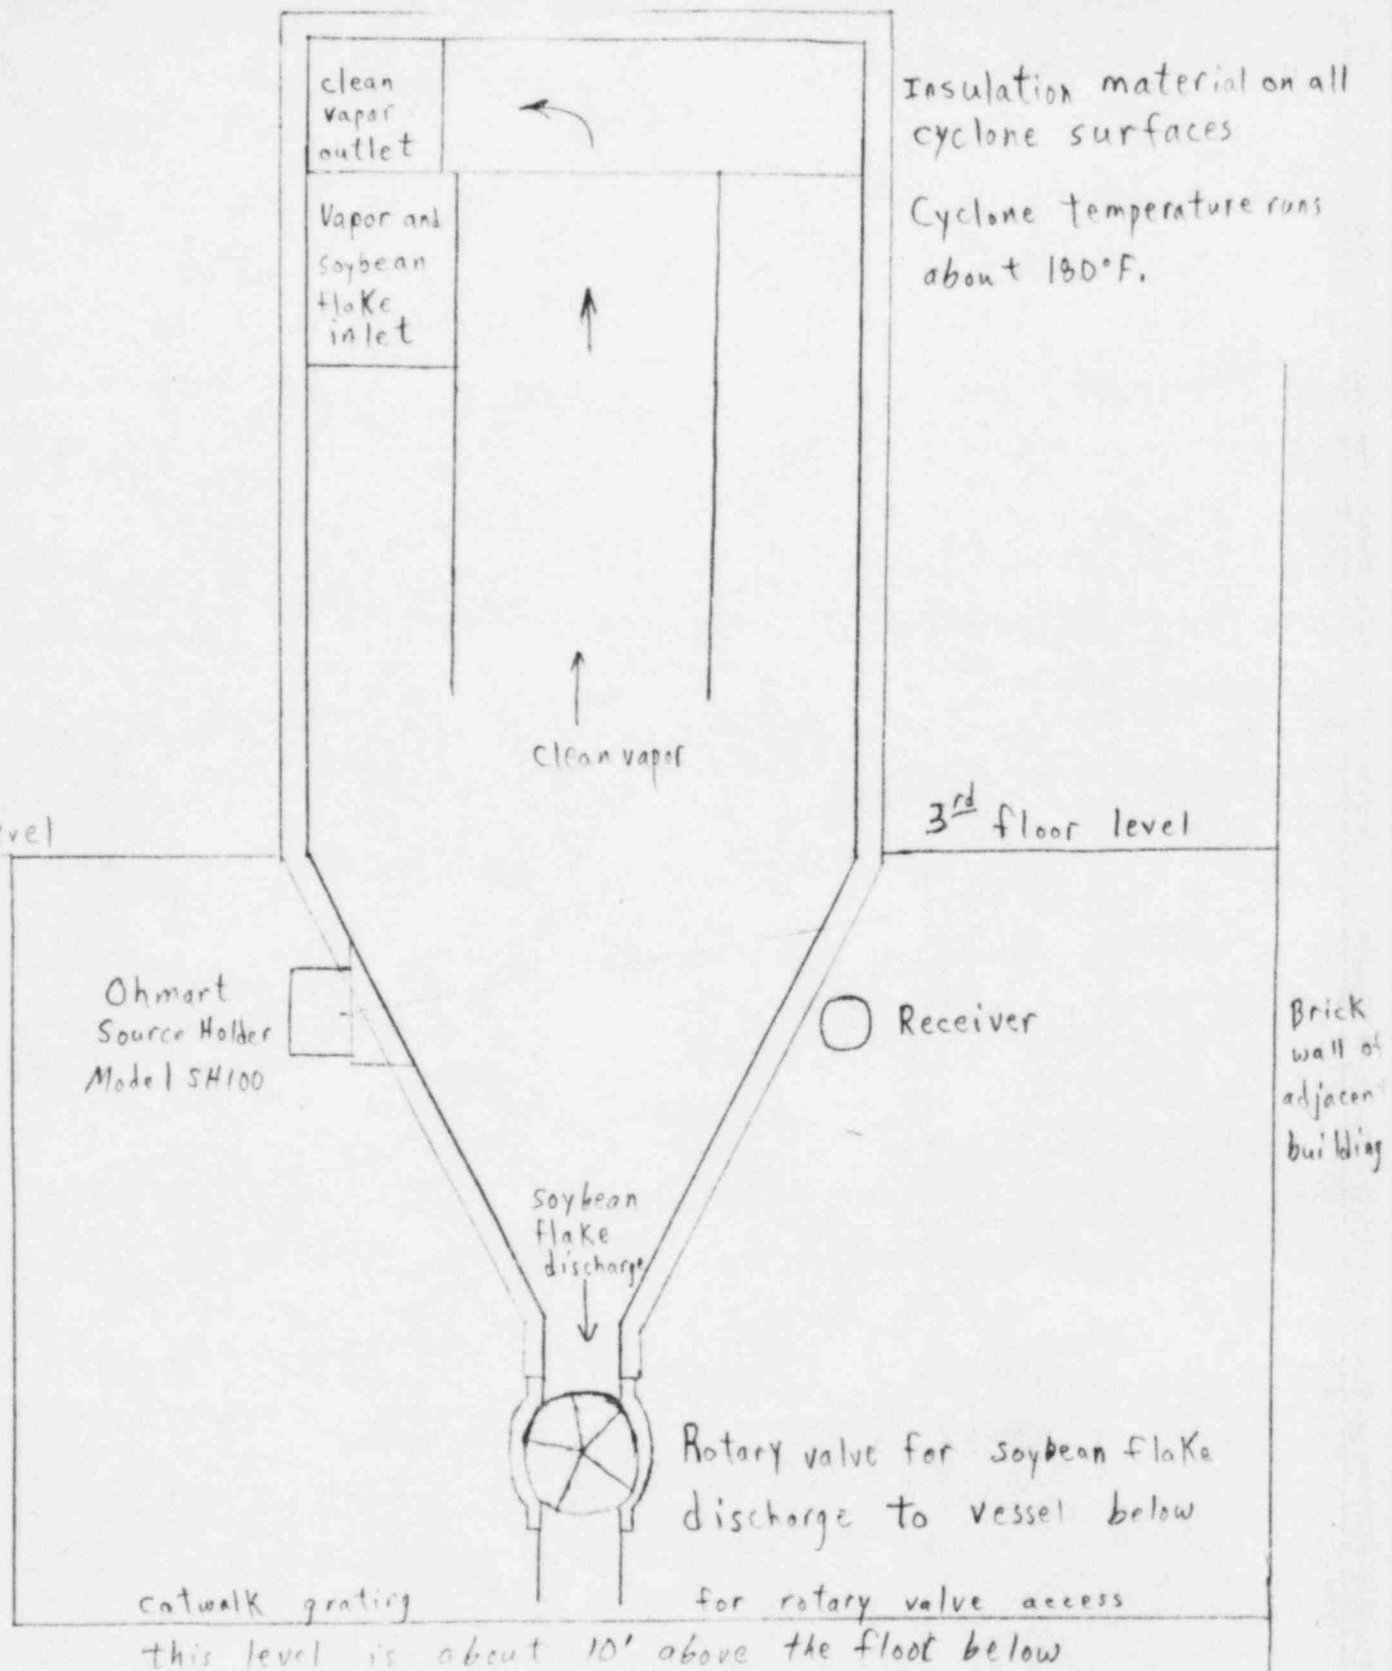 clean
vapor
outlet
Insulation material on all
cyclone surfaces
Vapor and
soybean
flake
inlet
Cyclone temperature runs
about 180°F.
clean vapor
3rd floor level
Ohmart
Source Holder
Model SH100
Receiver
Brick
wall of
adjacen
building
soybean
flake
discharge
Rotary valve for soybean flake
discharge to vessel below
catwalk grating for rotary valve access
this level is about 10' above the floor below